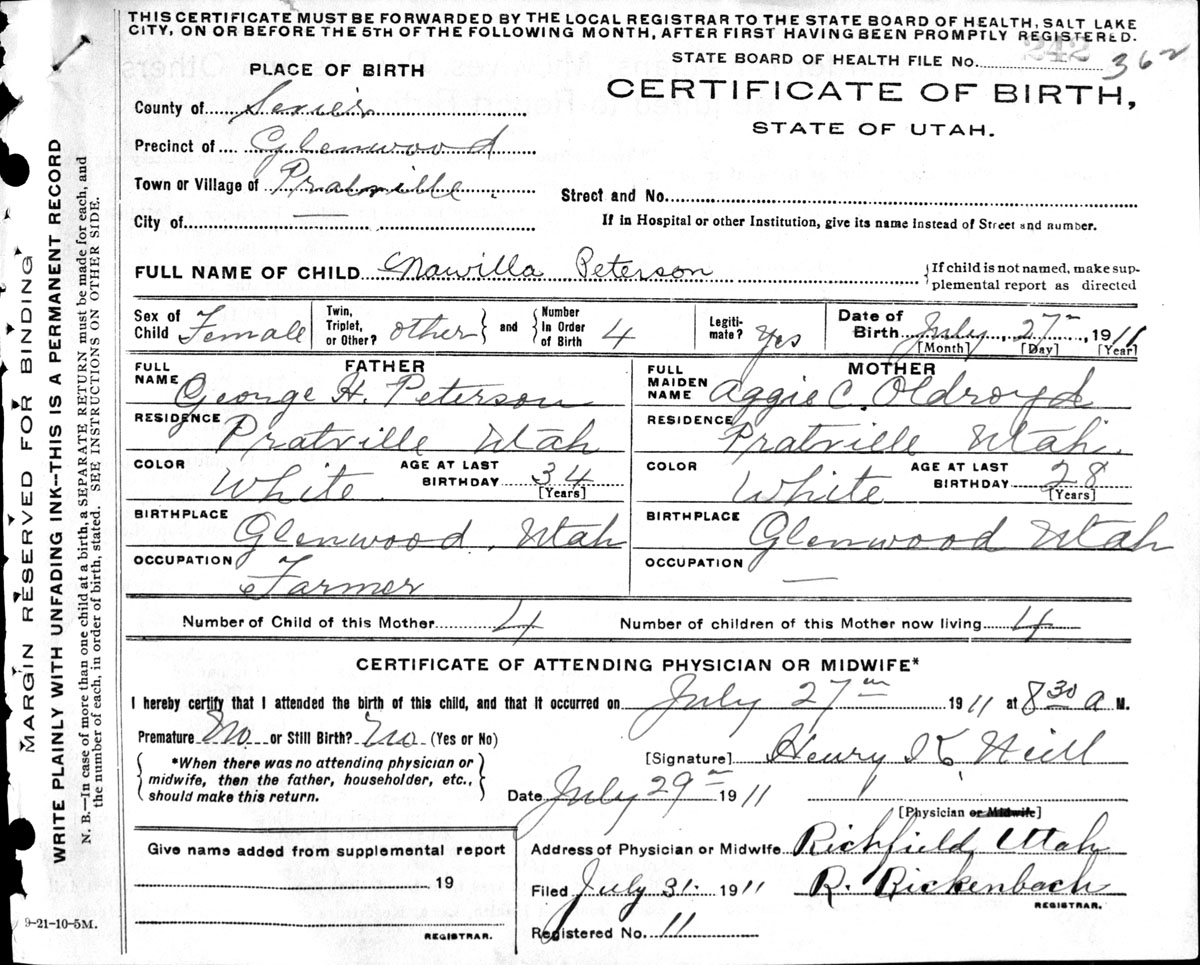 THIS CERTIFICATE MUST BE FORWARDED BY THE LOCAL REGISTRAR TO THE STATE BOARD OF HEALTH, SALT LAKE
CITY, ON OR BEFORE THE 5TH OF THE FOLLOWING MONTH, AFTER FIRST HAVING BEEN PROMPTLY REGISTERED.
242
STATE BOARD OF HEALTH FILE No. 362
PLACE OF BIRTH
CERTIFICATE OF BIRTH,
STATE OF UTAH.
County of Sevier
Precinct of Glenwood
Town or Village of Pratville
Street and No.
City of —
If in Hospital or other Institution, give its name instead of Street and number.
FULL NAME OF CHILD Nawilla Peterson
{If child is not named, make sup-
plemental report as directed
Sex of Child Female
Twin, Triplet, or Other? other } and { Number In Order of Birth 4
Legiti-mate? Yes
Date of Birth July, 27th, 1911
[Month] [Day] [Year]
FATHER
FULL NAME George H. Peterson
RESIDENCE Pratville Utah
COLOR White. AGE AT LAST BIRTHDAY 34 [Years]
BIRTHPLACE Glenwood, Utah
OCCUPATION Farmer
MOTHER
FULL MAIDEN NAME Aggie C. Oldroyd
RESIDENCE Pratville Utah.
COLOR White AGE AT LAST BIRTHDAY 28 [Years]
BIRTHPLACE Glenwood Utah
OCCUPATION —
Number of Child of this Mother 4 Number of children of this Mother now living 4
CERTIFICATE OF ATTENDING PHYSICIAN OR MIDWIFE*
I hereby certify that I attended the birth of this child, and that it occurred on July 27th 1911 at 8 30 a M.
Premature No or Still Birth? No (Yes or No)
*When there was no attending physician or
midwife, then the father, householder, etc.,
should make this return.
[Signature] Henry K. Neill
Date July 29th 1911
[Physician or Midwife]
Give name added from supplemental report
19
REGISTRAR.
Address of Physician or Midwife Richfield, Utah
Filed July 31. 1911 R. Rickenbach
REGISTRAR.
Registered No. 11
9-21-10-5M.
MARGIN RESERVED FOR BINDING
WRITE PLAINLY WITH UNFADING INK--THIS IS A PERMANENT RECORD
N. B.—In case of more than one child at a birth, a SEPARATE RETURN must be made for each, and
the number of each, in order of birth, stated. SEE INSTRUCTIONS ON OTHER SIDE.